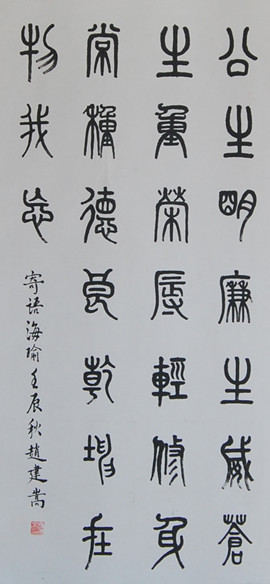 公生明廉生威蒼
生重榮辱輕修身
常種德良乾坤在
物我忘
寄語海瑜壬辰秋趙建嵩